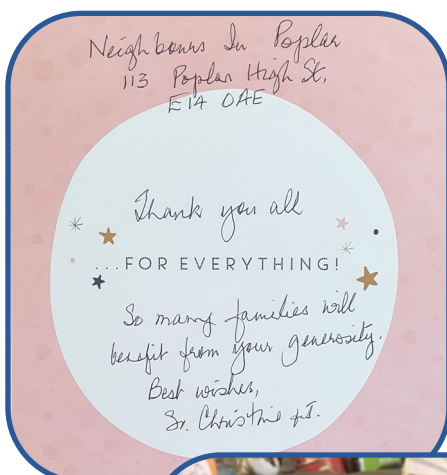 Neighbours In Poplar
113 Poplar High St,
E14 0AE
Thank you all
...FOR EVERYTHING!
So many families will
benefit from your generosity.
Best wishes,
Sr. Christine